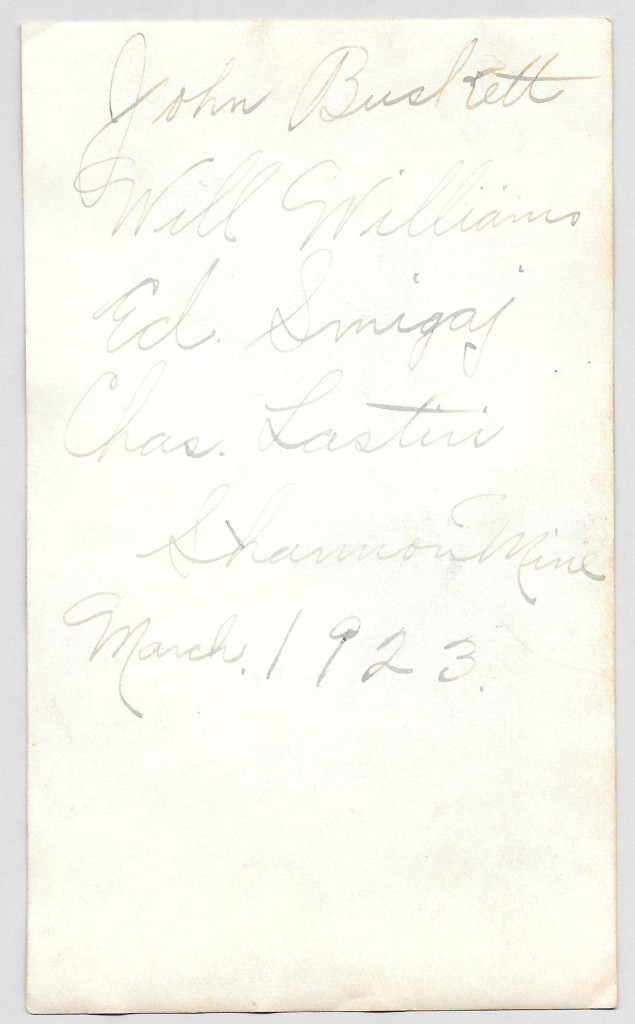 John Buskett
Will Williams
Ed. Smigaj
Chas. Lastiri
Shannon Mine
March. 1923.